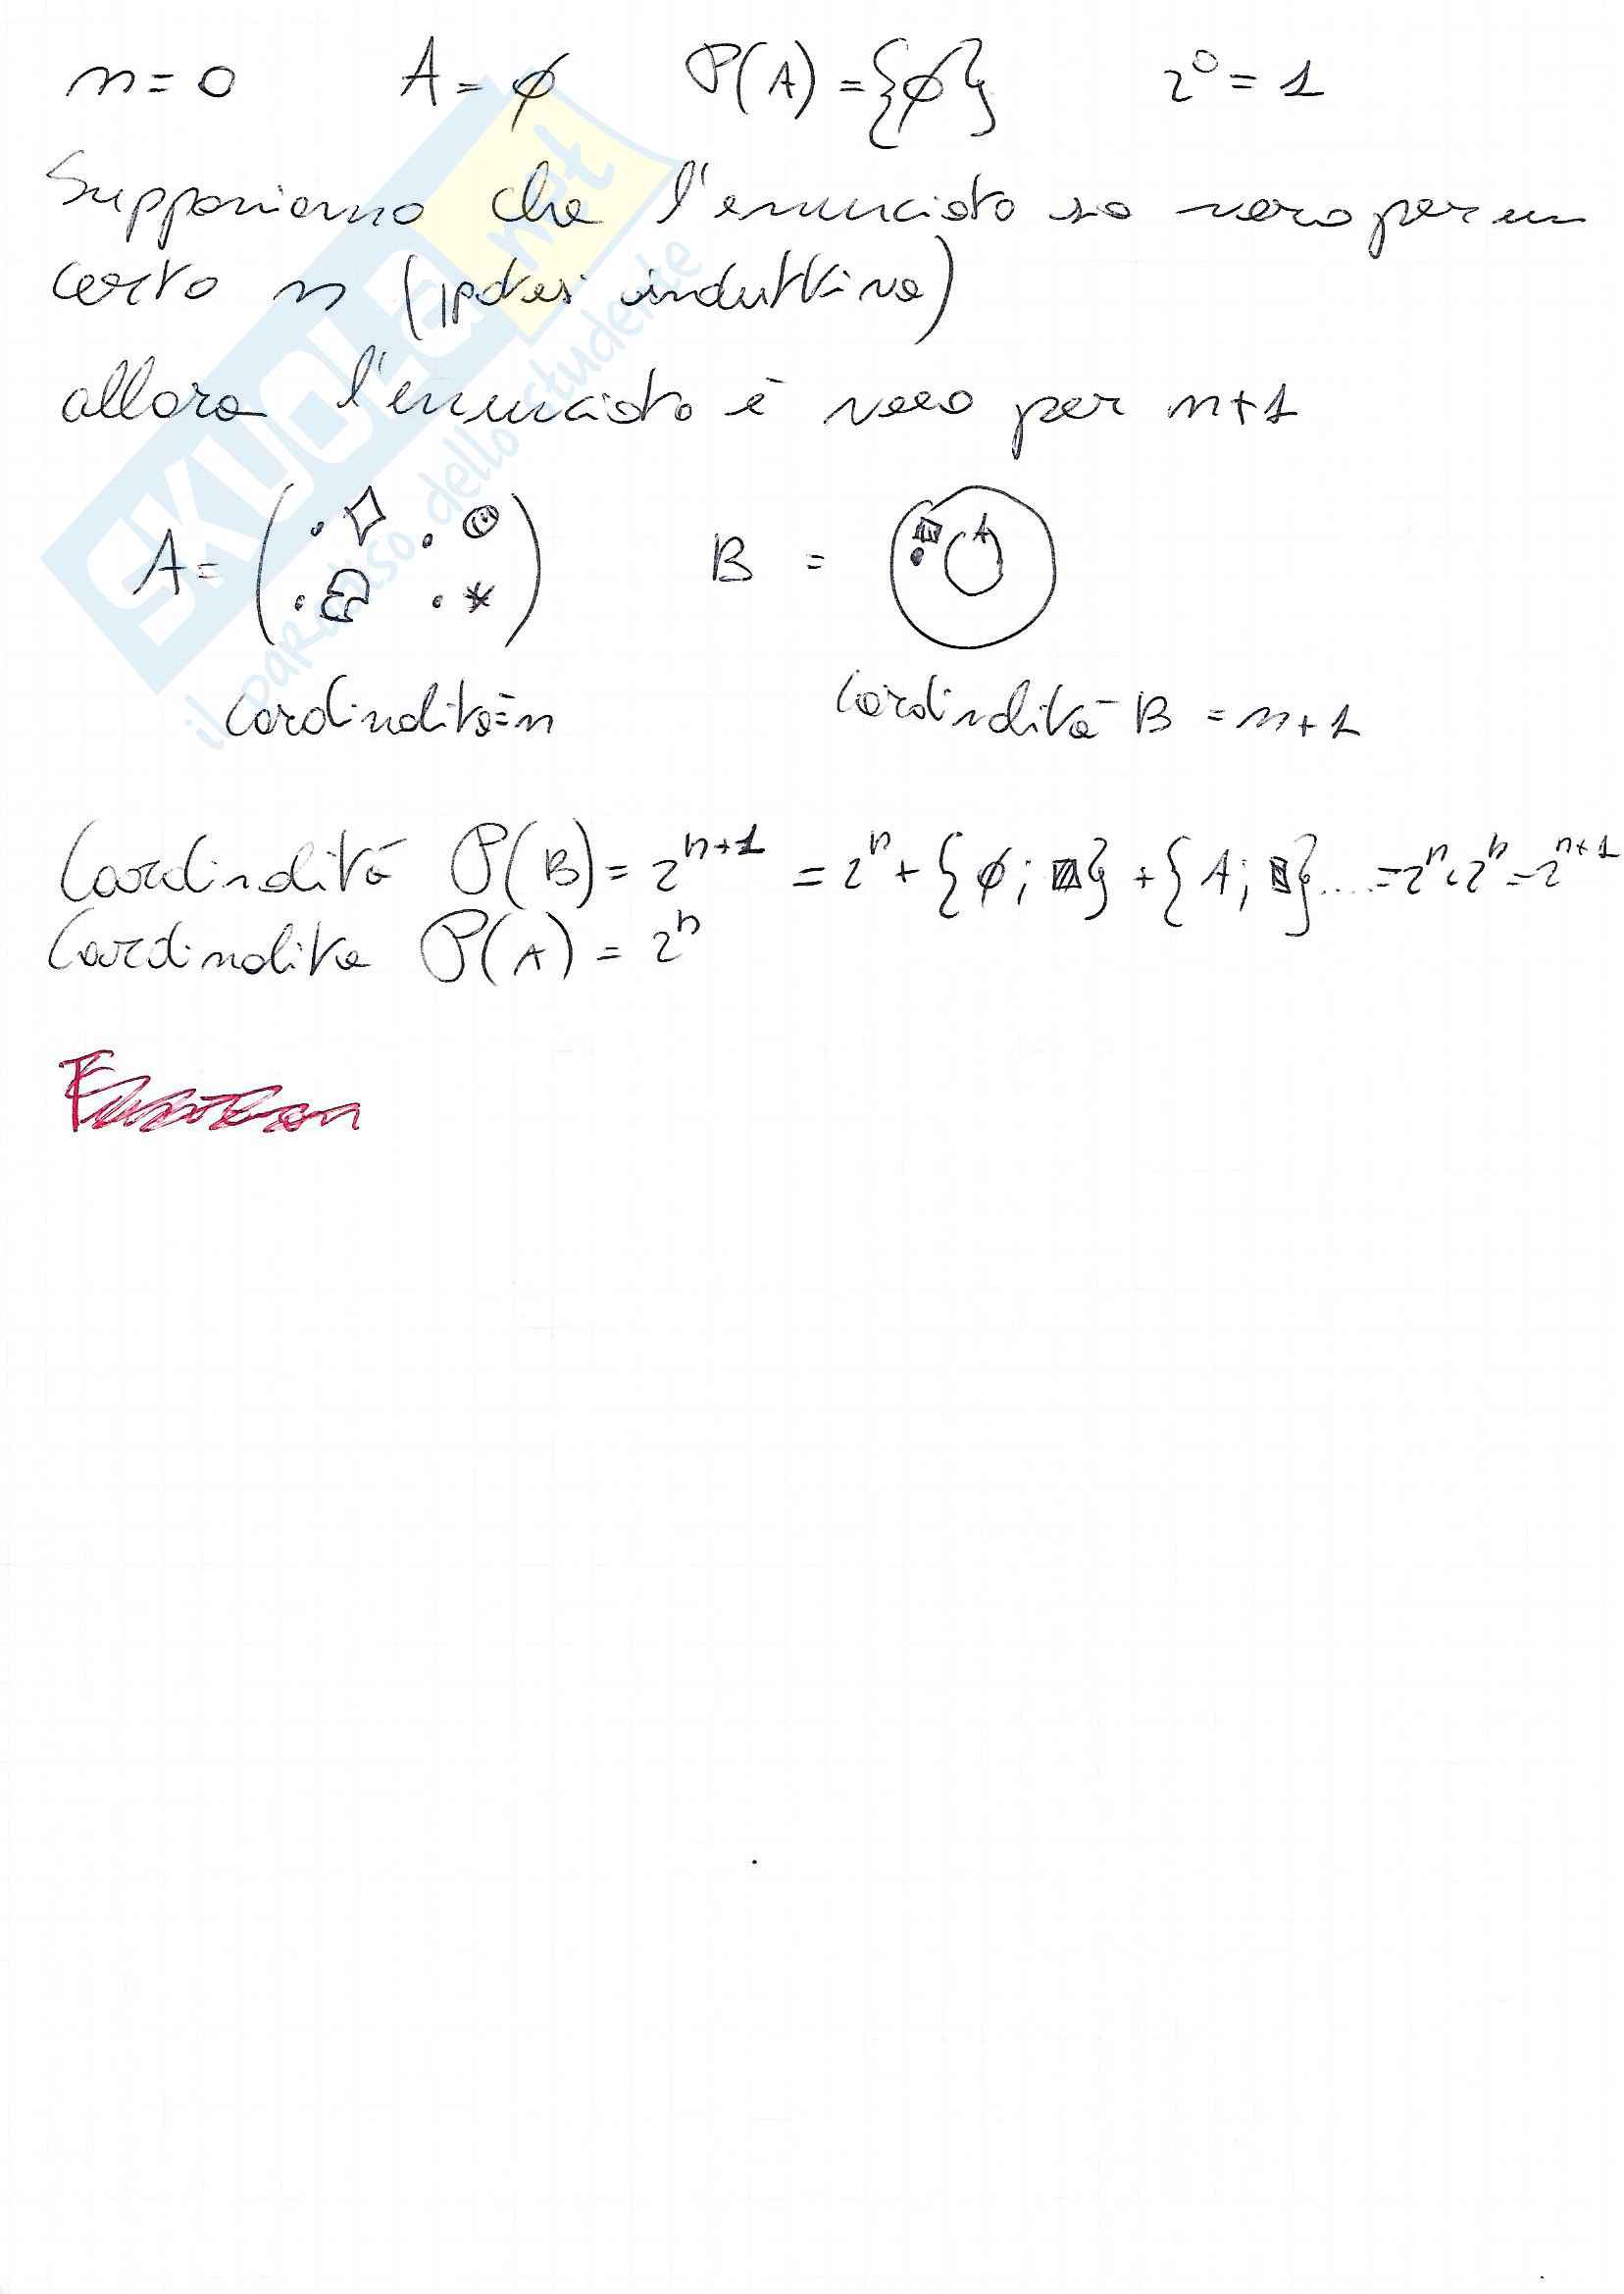 n=0 A=∅ P(A)={∅} 2⁰=1
Supponiamo che l'enunciato sia vero per un
certo n (ipotesi induttiva)
allora l'enunciato è vero per n+1
A= B = A
Cardinalità=n Cardinalità B = n+1
Cardinalità P(B)= 2ⁿ⁺¹ = 2ⁿ + {∅; ▨} + {A; ▨}.... = 2ⁿ · 2ⁿ = 2ⁿ⁺¹
Cardinalità P(A) = 2ⁿ
SKUOLA.net
il paradiso dello studente